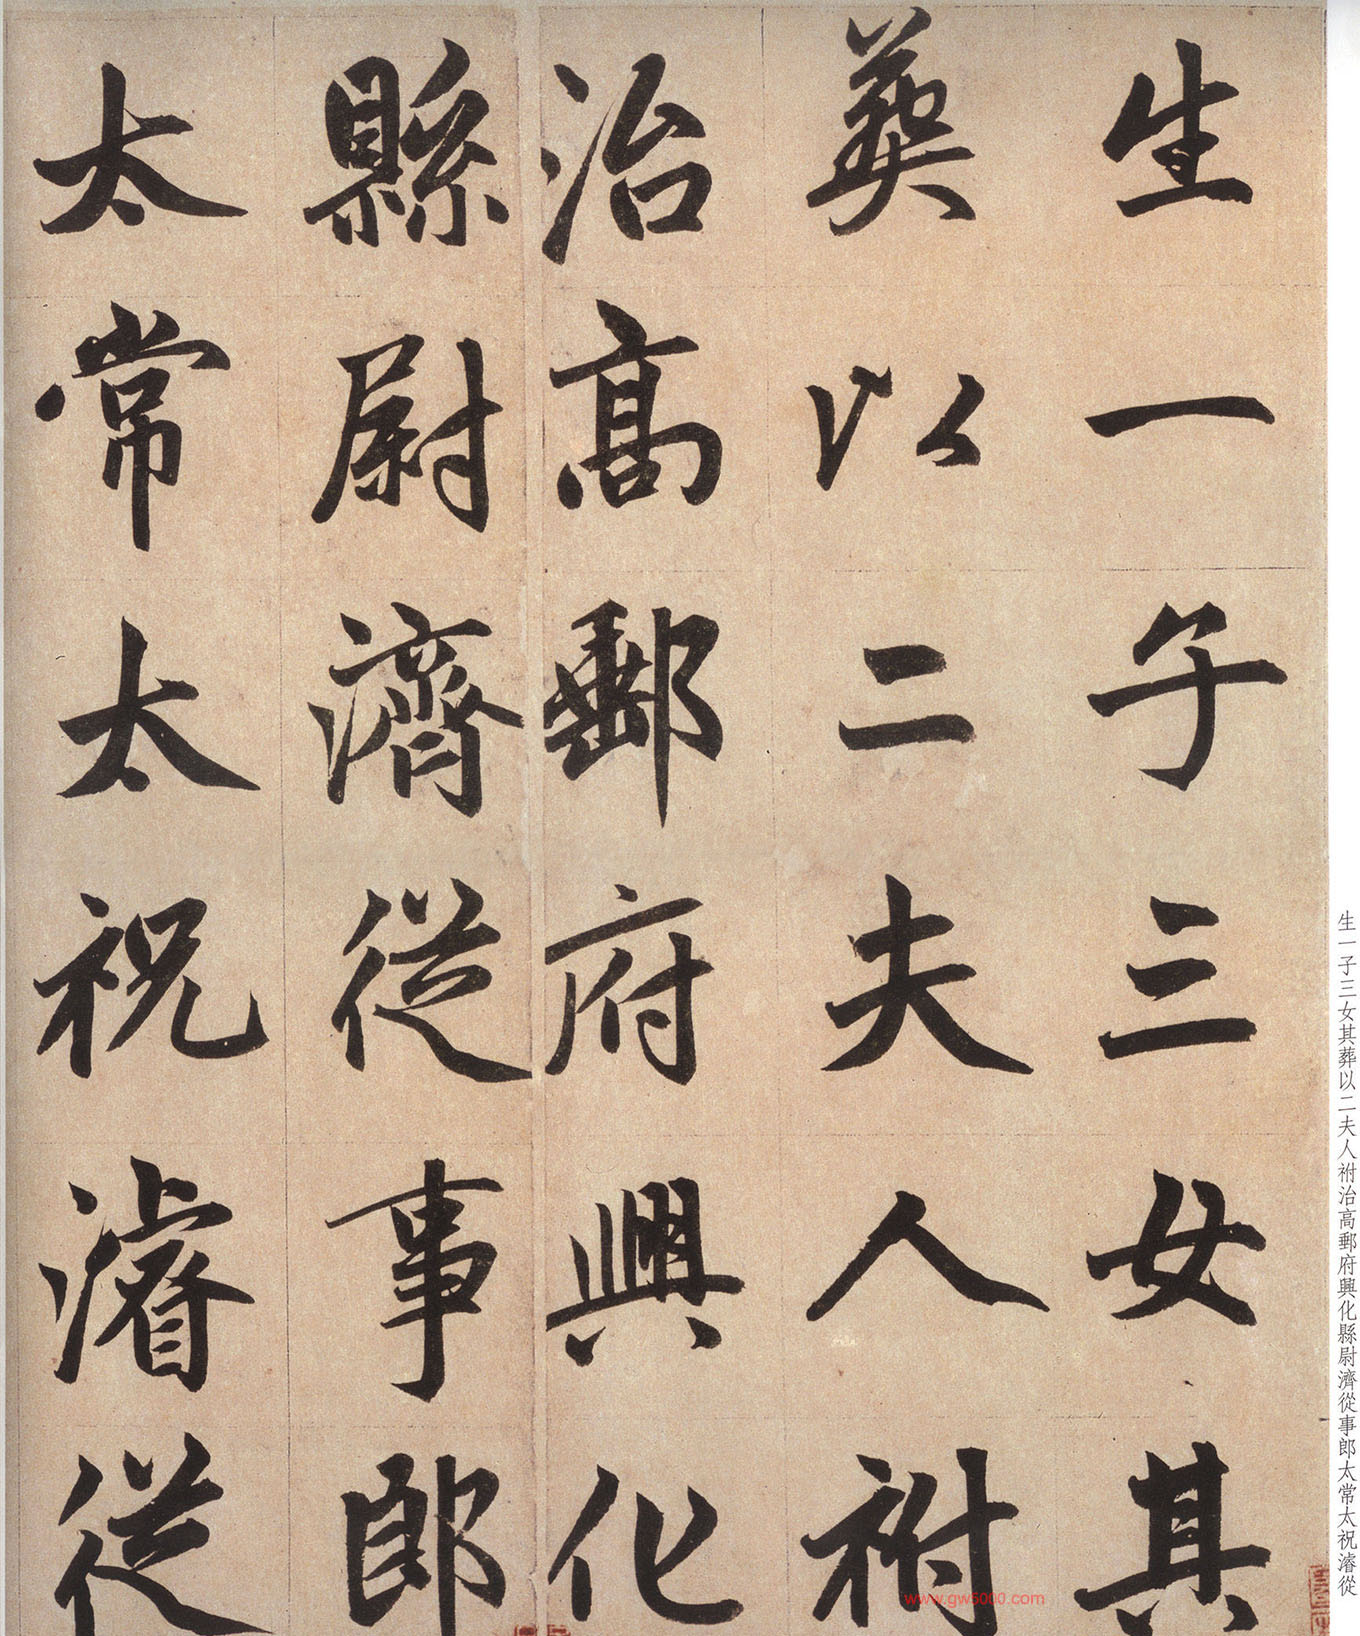 生一子三女其
葬以二夫人祔
治高郵府興化
縣尉濟從事郎
太常太祝濬從
生一子三女其葬以二夫人祔治高郵府興化縣尉濟從事郎太常太祝濬從
www.gw5000.com